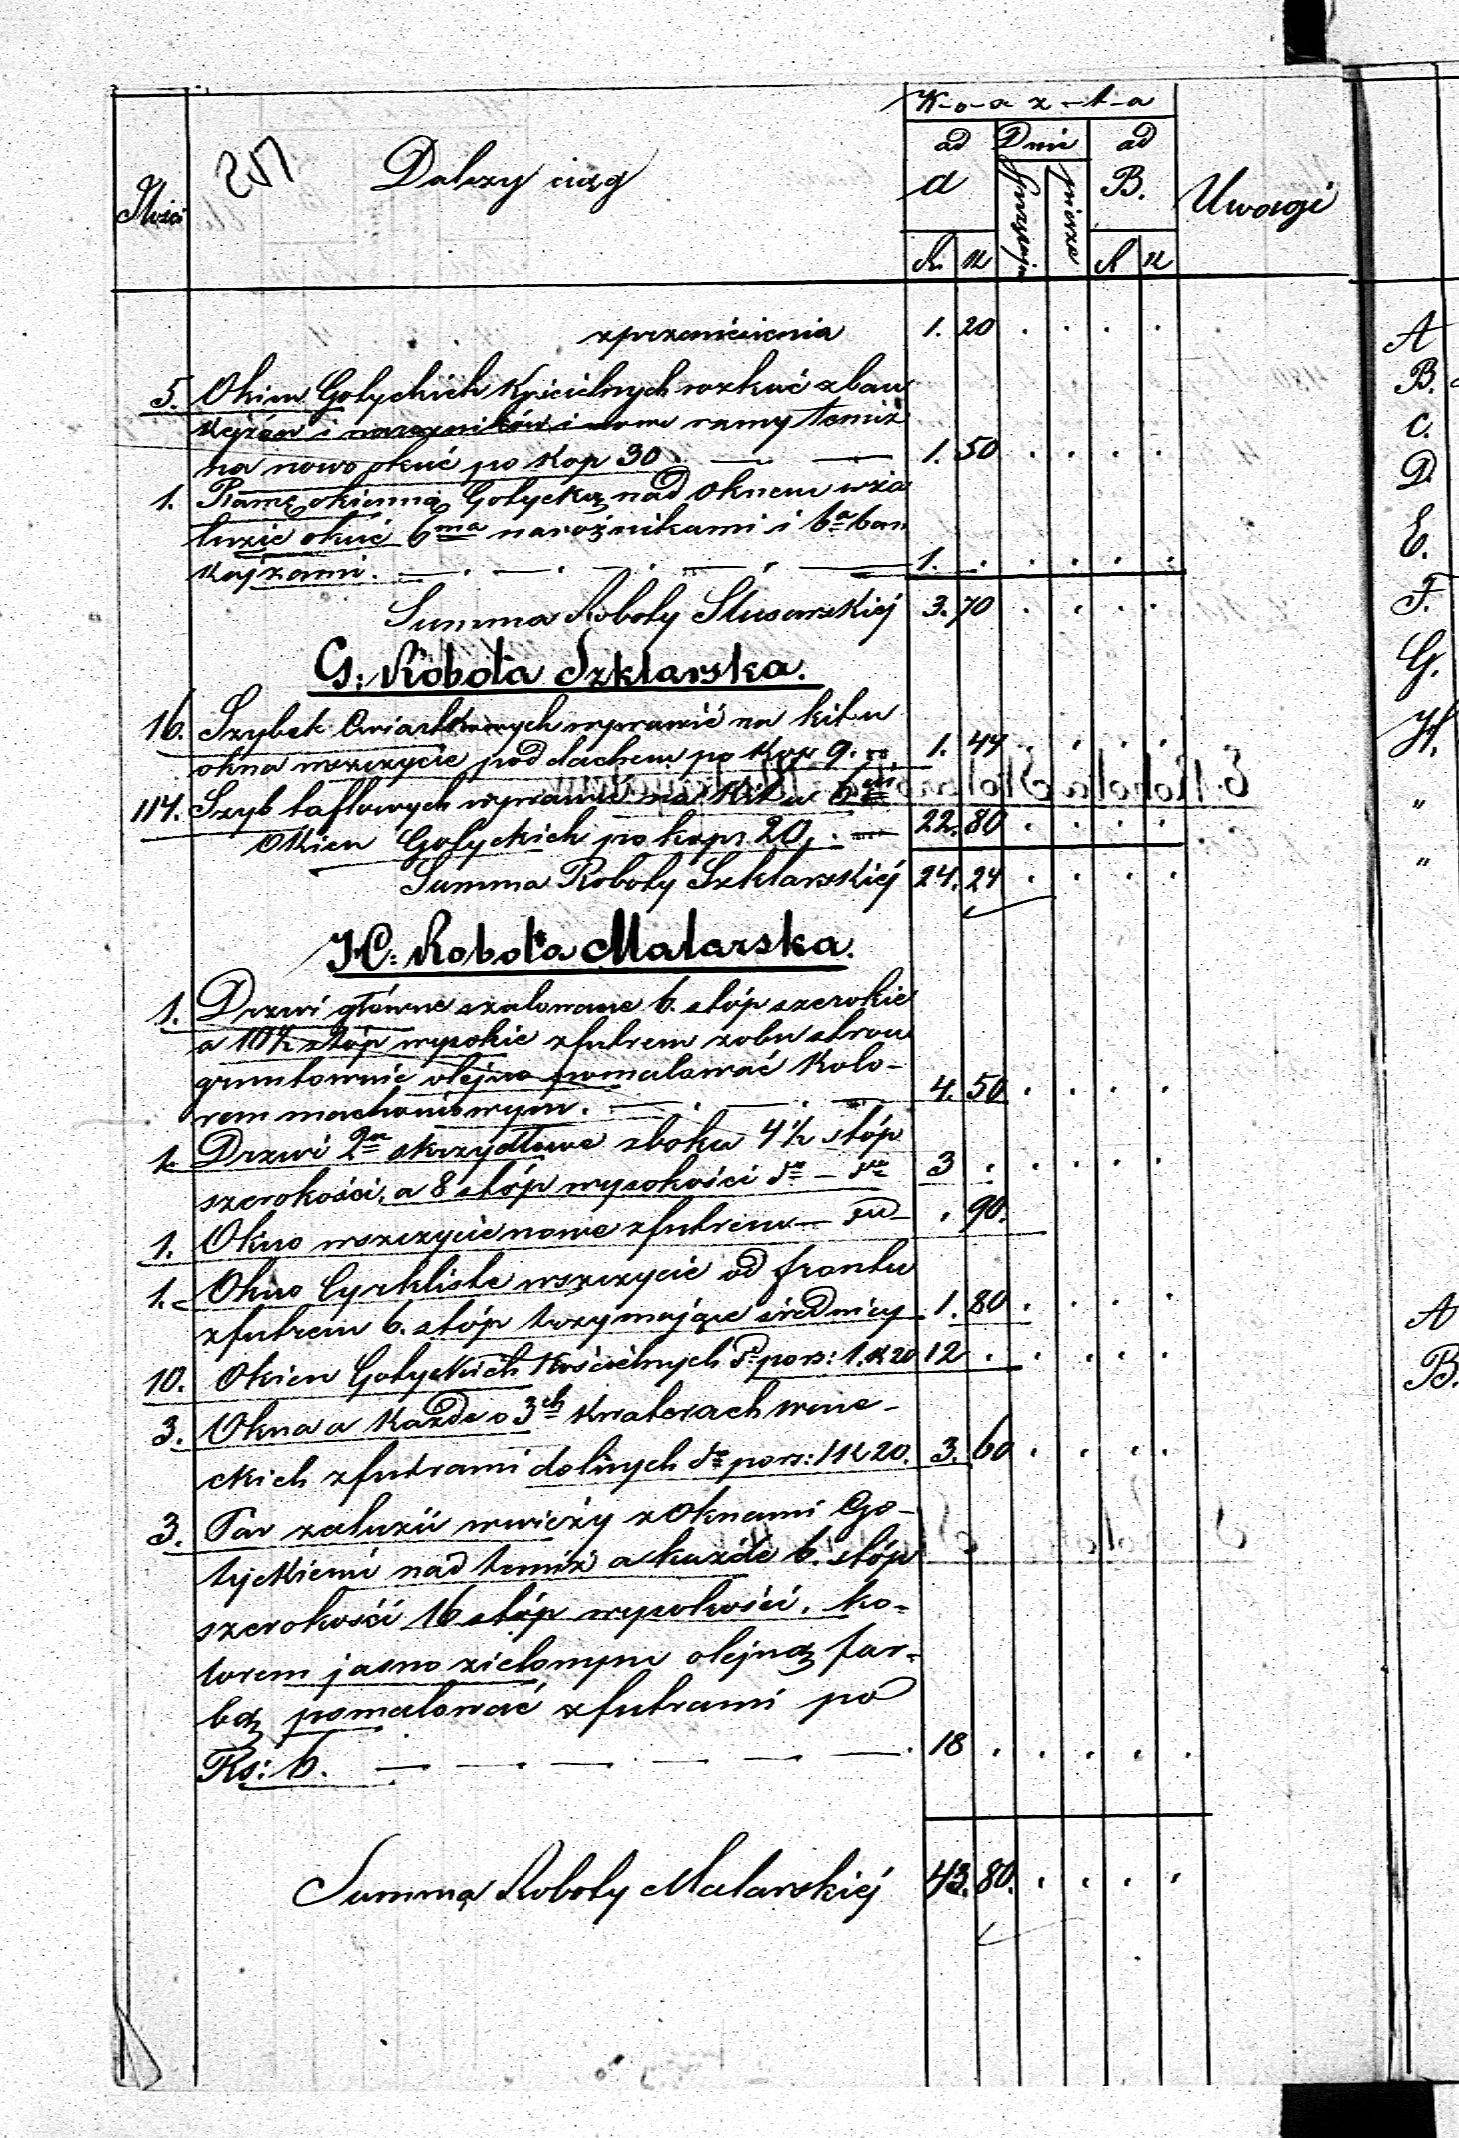 K-o-s-z-t-a
Ilości
Dalszy ciąg
ad Dnie ad
a B.
Uwagi
R. K R K
zprzeniesienia 1. 20
5. Okien Gotyckich Kościelnych rozkuć zban
kajzów i narozników i nowe ramy temiż
na nowo okuć po Kop 30. 1. 50
1. Ramę okienną Gotycką nad oknem wża
luzie okuć 6ma narożnikami i 6a ban
kajzami. 1.
Summa Roboty Slusarskiéj 3. 70
G: Robota Szklarska.
16. Szybek Cwiartkowych wprawić na kitu
okna wszczycie pod dachem po Kop 9. 1. 44
114. Szyb taflowych wprawić na Kitu
Okien Gotyckich po kopr 20. 22. 80
Summa Roboty Szklarskiéj 24. 24
H: Robota Malarska.
1. Drzwi główne szalowane 6. stóp szerokie
a 10½ stóp wysokie zfutrem zobu stron
gruntownie olejno pomalować Kolo-
rem machoniowym. 4. 50
1. Drzwi 2a skrzydłowe zboku 4½ stóp
szerokości, a 8 stóp wysokości da – da 3
1. Okno wszczycie nowe zfutrem – 90.
1. Okno Cyrkliste wszczycie od frontu
zfutrem 6. stóp trzymające średnicy 1. 80
10. Okien Gotyckich Kościelnych da pors: 1. K 20 12
3. Okna a Każde o 3ch Kwaterach wene-
ckich zfutrami dolnych da pors: 1 K 20. 3. 60
3. Par zaluzii wwieży z oknami Go-
tyckiemi nad temiż a każde 6. stóp
szerokości 16 stóp wysokości, ko-
lorem jasno zielonym olejną far-
bą pomalować zfutrami po
Rs: 6. 18
Summa Roboty Malarskiéj 43. 80.
A
B.
C.
D.
E.
F.
G.
H.
"
"
A
B.